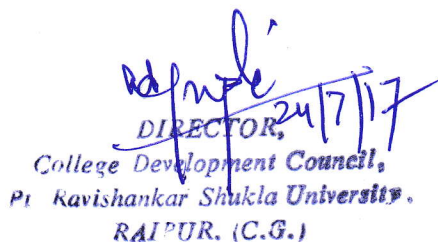 24/7/17
DIRECTOR,
College Development Council,
Pt Ravishankar Shukla University.
RAIPUR. (C.G.)